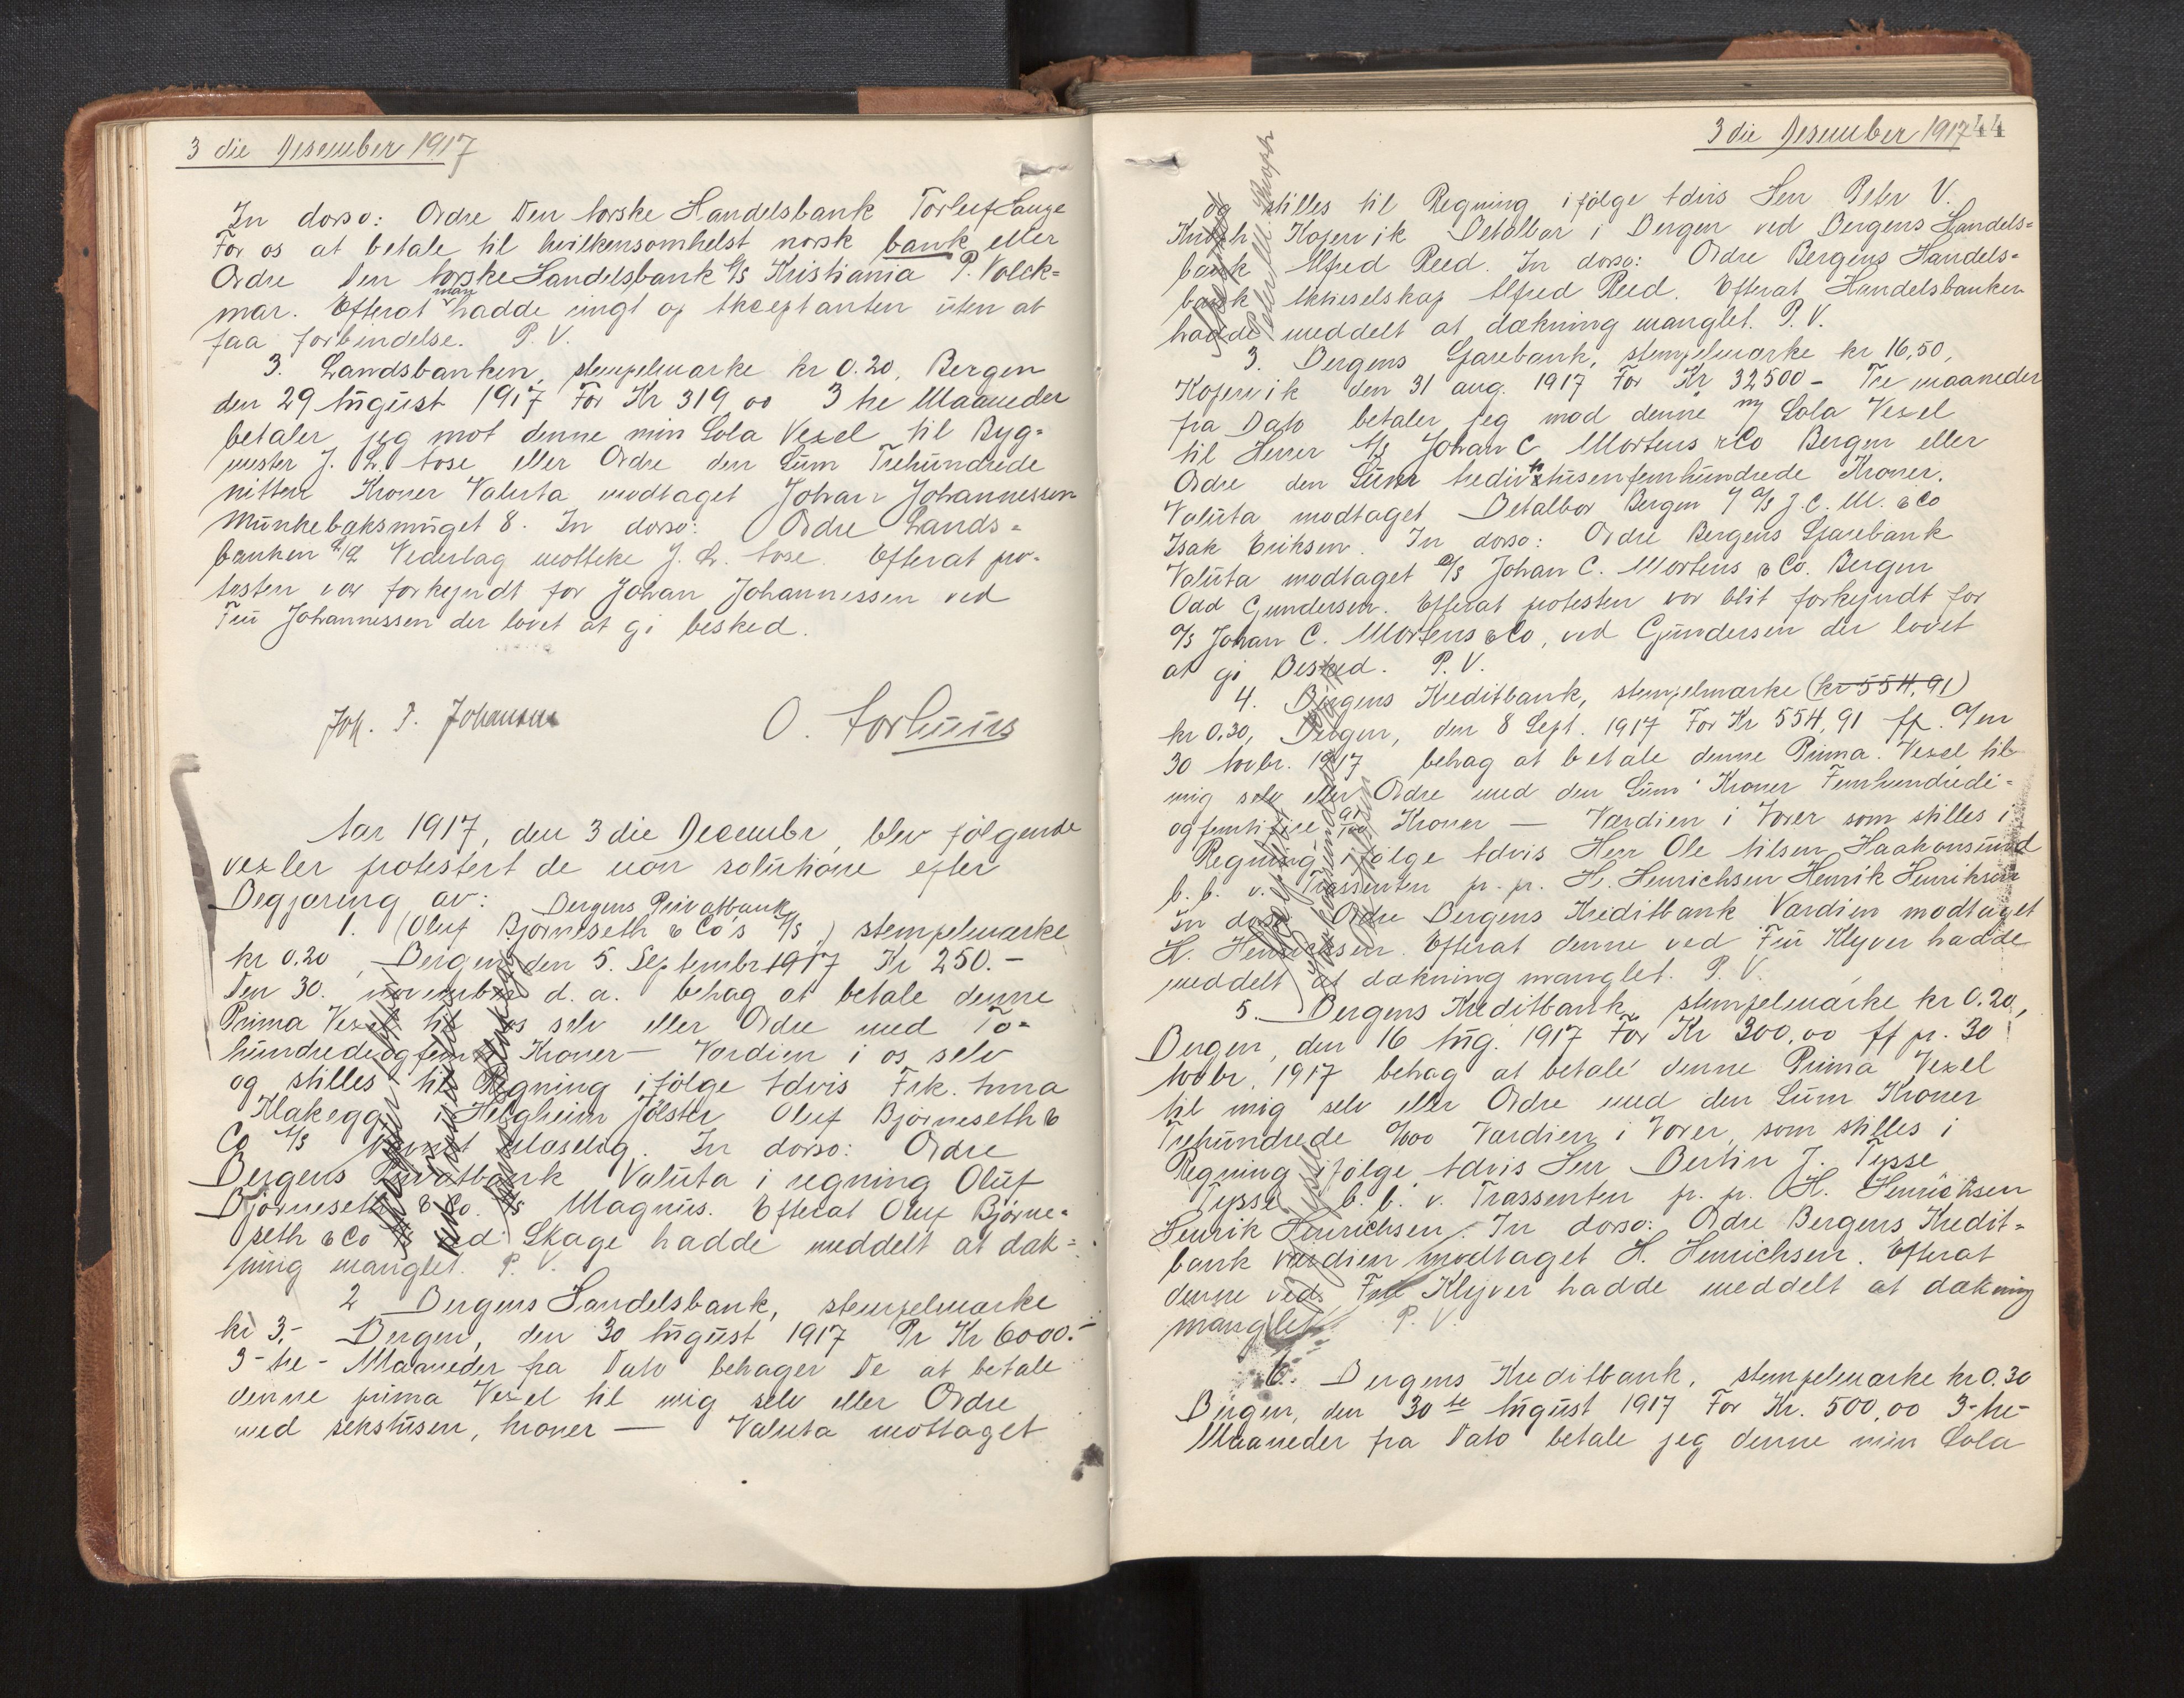 3 die Desember 1917
In dorso: Ordre Den Norske Handelsbank Torleif Lange
For os at betale til hvilkensomhelst norsk bank eller
Ordre Den Norske Handelsbank A/S Kristiania P. Volck=
mar. Efterat man hadde ringt op Akceptanten uten at
faa forbindelse. P. V.
3. Landsbanken, stempelmarke kr 0.20, Bergen
den 29 August 1917 For Kr 319 00 3 tre Maaneder
betaler jeg mot denne min Sola Vexel til Byg=
mester J. L. Aase eller Ordre den Sum Trehundrede
nitten Kroner Valuta modtaget Johan Johannessen
Munkebaksmuget 8. In dorso: Ordre Lands=
banken A/S Vederlag motteke J. L. Aase. Efterat pro=
testen var forkyndt for Johan Johannessen ved
Fru Johannessen der lovet at gi besked.
Joh. T. Johansen O. Aarhuus
Aar 1917, den 3 die Decembr, blev følgende
vexler protestert de non solutione efter
Begjæring av: Bergens Privatbank
1. (Oluf Bjørneseth & Co's A/S,) stempelmærke
kr 0.20, Bergen den 5. Septembr 1917 Kr 250.-
Den 30. november d. a. behag at betale denne
Prima Vexel til os selv eller Ordre med To=
hundredeogfemti Kroner — Værdien i os selv
og stilles til Regning ifølge Advis Frk. Anna
Klakegg i Helgheim Jølster Oluf Bjørneseth &
Co A/S In dorso: Ordre
Bergens Privatbank Valuta i regning Oluf
Bjørneseth & Co. A/S Magnus. Efterat Oluf Bjørne=
seth & Co A/S ved Skage hadde meddelt at dæk=
ning manglet. P. V.
2 Bergens Handelsbank, stempelmærke
kr 3,- Bergen, den 30 August 1917 Pr Kr 6000.-
3-tre- Maaneder fra Dato behager De at betale
denne prima Vexel til mig selv eller Ordre
med sekstusen, kroner — Valuta mottaget
3 die Desember 1917 44
og stilles til Regning ifølge Advis Herr Peter V.
Knoph Kopervik Betalbar i Bergen ved Bergens Handels=
bank Alfred Reed. In dorso: Ordre Bergens Handels=
bank Aktieselskap Alfred Reed. Efterat Handelsbanken
hadde meddelt at dækning manglet. P. V.
3. Bergens Sparebank, stempelmærke kr 16,50,
Kopervik den 31 aug. 1917 For Kr 32500 - Tre maaneder
fra Dato betaler jeg mod denne my Sola Vexel
til Herrer A/S Johan C Mortens & Co Bergen eller
Ordre den Sum tredivtotusenfemhundrede Kroner.
Valuta modtaget Betalbar Bergen A/S J. C. M. & Co
Isak Eriksen. In dorso: Ordre Bergens Sparebank
Valuta modtaget A/S Johan C. Mortens & Co. Bergen
Odd Gundersen. Efterat protesten var blit forkyndt for
A/S Johan C. Mortens & Co, ved Gundersen der lovet
at gi Besked. P. V.
4. Bergens Kreditbank, stempelmærke (kr 554,91)
kr 0.30, Bergen, den 8 Sept. 1917 For Kr 554,91 ff.
30 Novbr. 1917 behag at betale denne Prima Vexel til
mig selv eller Ordre med den Sum Kroner Femhundrede=
ogfemtifire 91/100 Kroner — Værdien i Varer som stilles i
Regning ifølge Advis Herr Ole Nilsen Haakonsund
b. b. v. Trassenten pr. pr. H. Henrichsen Henrik Henriksen
In dorso: Ordre Bergens Kreditbank Værdien modtaget
H. Henrichsen. Efterat denne ved Fru Klyver hadde
meddelt at dækning manglet. P. V.
5. Bergens Kreditbank, stempelmærke kr 0.20,
Bergen, den 16 Aug. 1917 For Kr 300,00 ff pr. 30
Novbr. 1917 behag at betale denne Prima Vexel
til mig selv eller Ordre med den Sum Kroner
Trehundrede 0/100 Værdien i Varer, som stilles i
Regning ifølge Advis Herr Bertin J. Tysse
Tysse b. b. v. Trassenten pr. pr. H. Henrichsen
Henrik Henrichsen. In dorso: Ordre Bergens Kredit=
bank værdien modtaget H. Henrichsen. Efterat
denne ved Fru Klyver hadde meddelt at dækning
manglet. P. V.
6. Bergens Kreditbank, stempelmærke kr 0.30
Bergen, den 30te August 1917 For Kr. 500,00 3-tre-
Maaneder fra Dato betale jeg denne min Sola